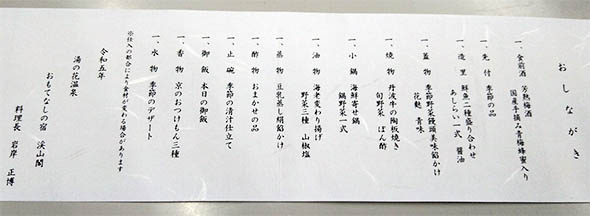 おしながき
一、食前酒 芳熟梅酒
国産手摘み青梅蜂蜜入り
一、先付 季節の品
一、造里 鮮魚二種盛り合わせ
あしらい一式 醤油
一、蓋物 季節野菜饅頭美味餡かけ
花麩 青味
一、焼物 丹波牛の陶板焼き
旬野菜 ぽん酢
一、小鍋 海鮮寄せ鍋
鍋野菜一式
一、油物 海老変わり揚げ
野菜三種 山椒塩
一、蒸物 豆乳蒸し絹餡かけ
一、酢物 おまかせの品
一、止碗 季節の清汁仕立て
一、御飯 本日の御飯
一、香物 京のおつけもん三種
一、水物 季節のデザート
※仕入の都合により食材が変わる場合があります
令和五年
湯の花温泉
おもてなしの宿 渓山閣
料理長 岩岸 正博